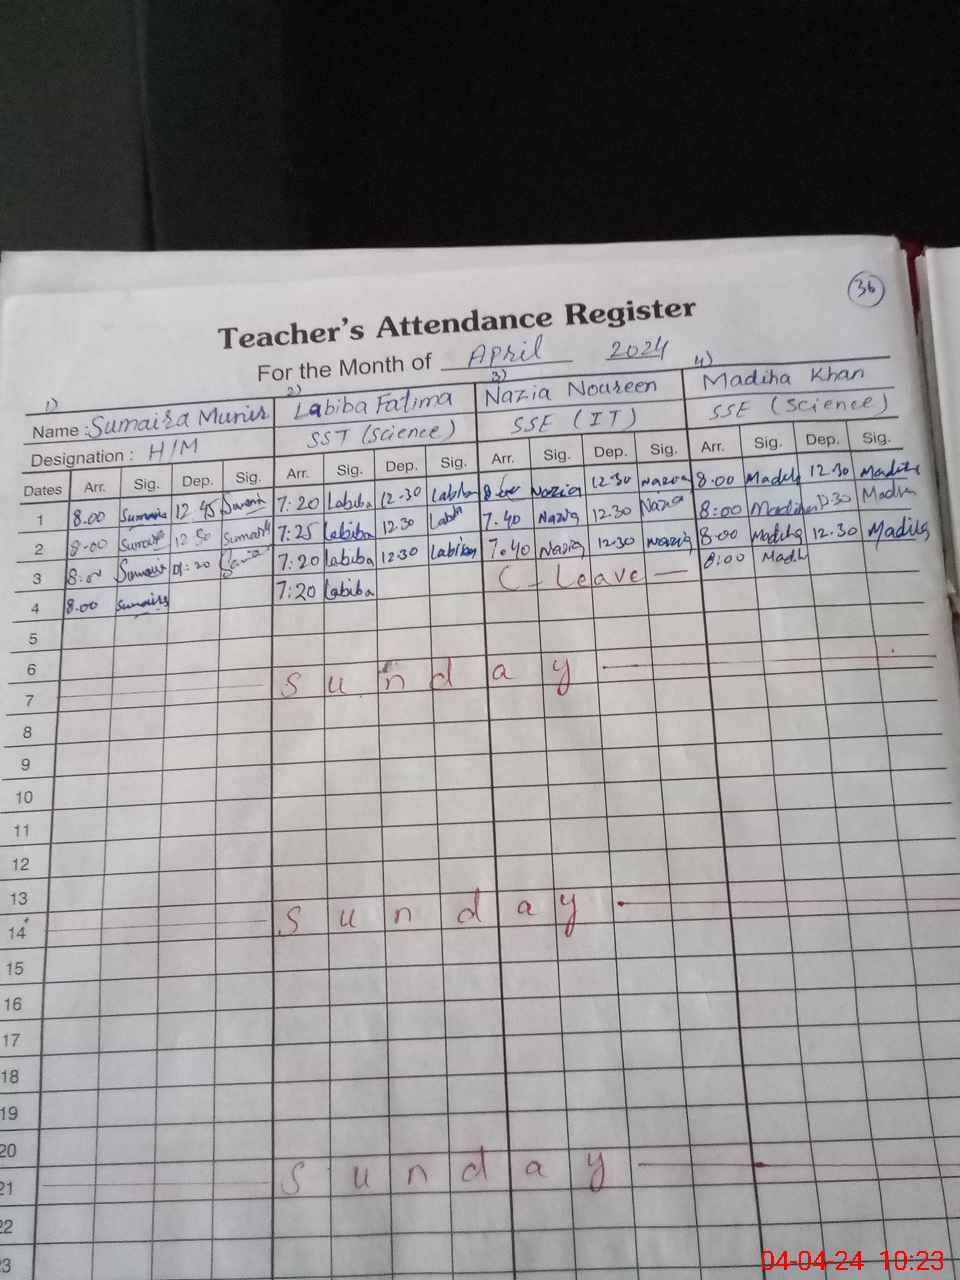 36
Teacher's Attendance Register
For the Month of April 2024
1) 2) 3) 4)
Name : Sumaira Munir Labiba Fatima Nazia Noureen Madiha Khan
Designation : H/M SST (Science) SSE (IT) SSE (Science)
Dates Arr. Sig. Dep. Sig. Arr. Sig. Dep. Sig. Arr. Sig. Dep. Sig. Arr. Sig. Dep. Sig.
1 8.00 Sumaira 12 45 7:20 Labiba 12-30 Labiba Nazia 12-30 Nazia 8.00 Madiha 12.30 Madiha
2 8.00 Sumaira 12 50 Sumaira 7:25 Labiba 12.30 Labiba 7.40 Nazia 12.30 Nazia 8:00 Madiha 12.30 Madiha
3 8:00 Sumaira 01:20 7:20 Labiba 12:30 Labiba 7.40 Nazia 12.30 Nazia 8:00 Madiha 12.30 Madiha
4 8.00 Sumaira 7:20 Labiba C - Leave - 8:00 Madiha
5
6
7 Sunday
8
9
10
11
12
13
14 Sunday
15
16
17
18
19
20
21 Sunday
22
3
04-04-24 10:23